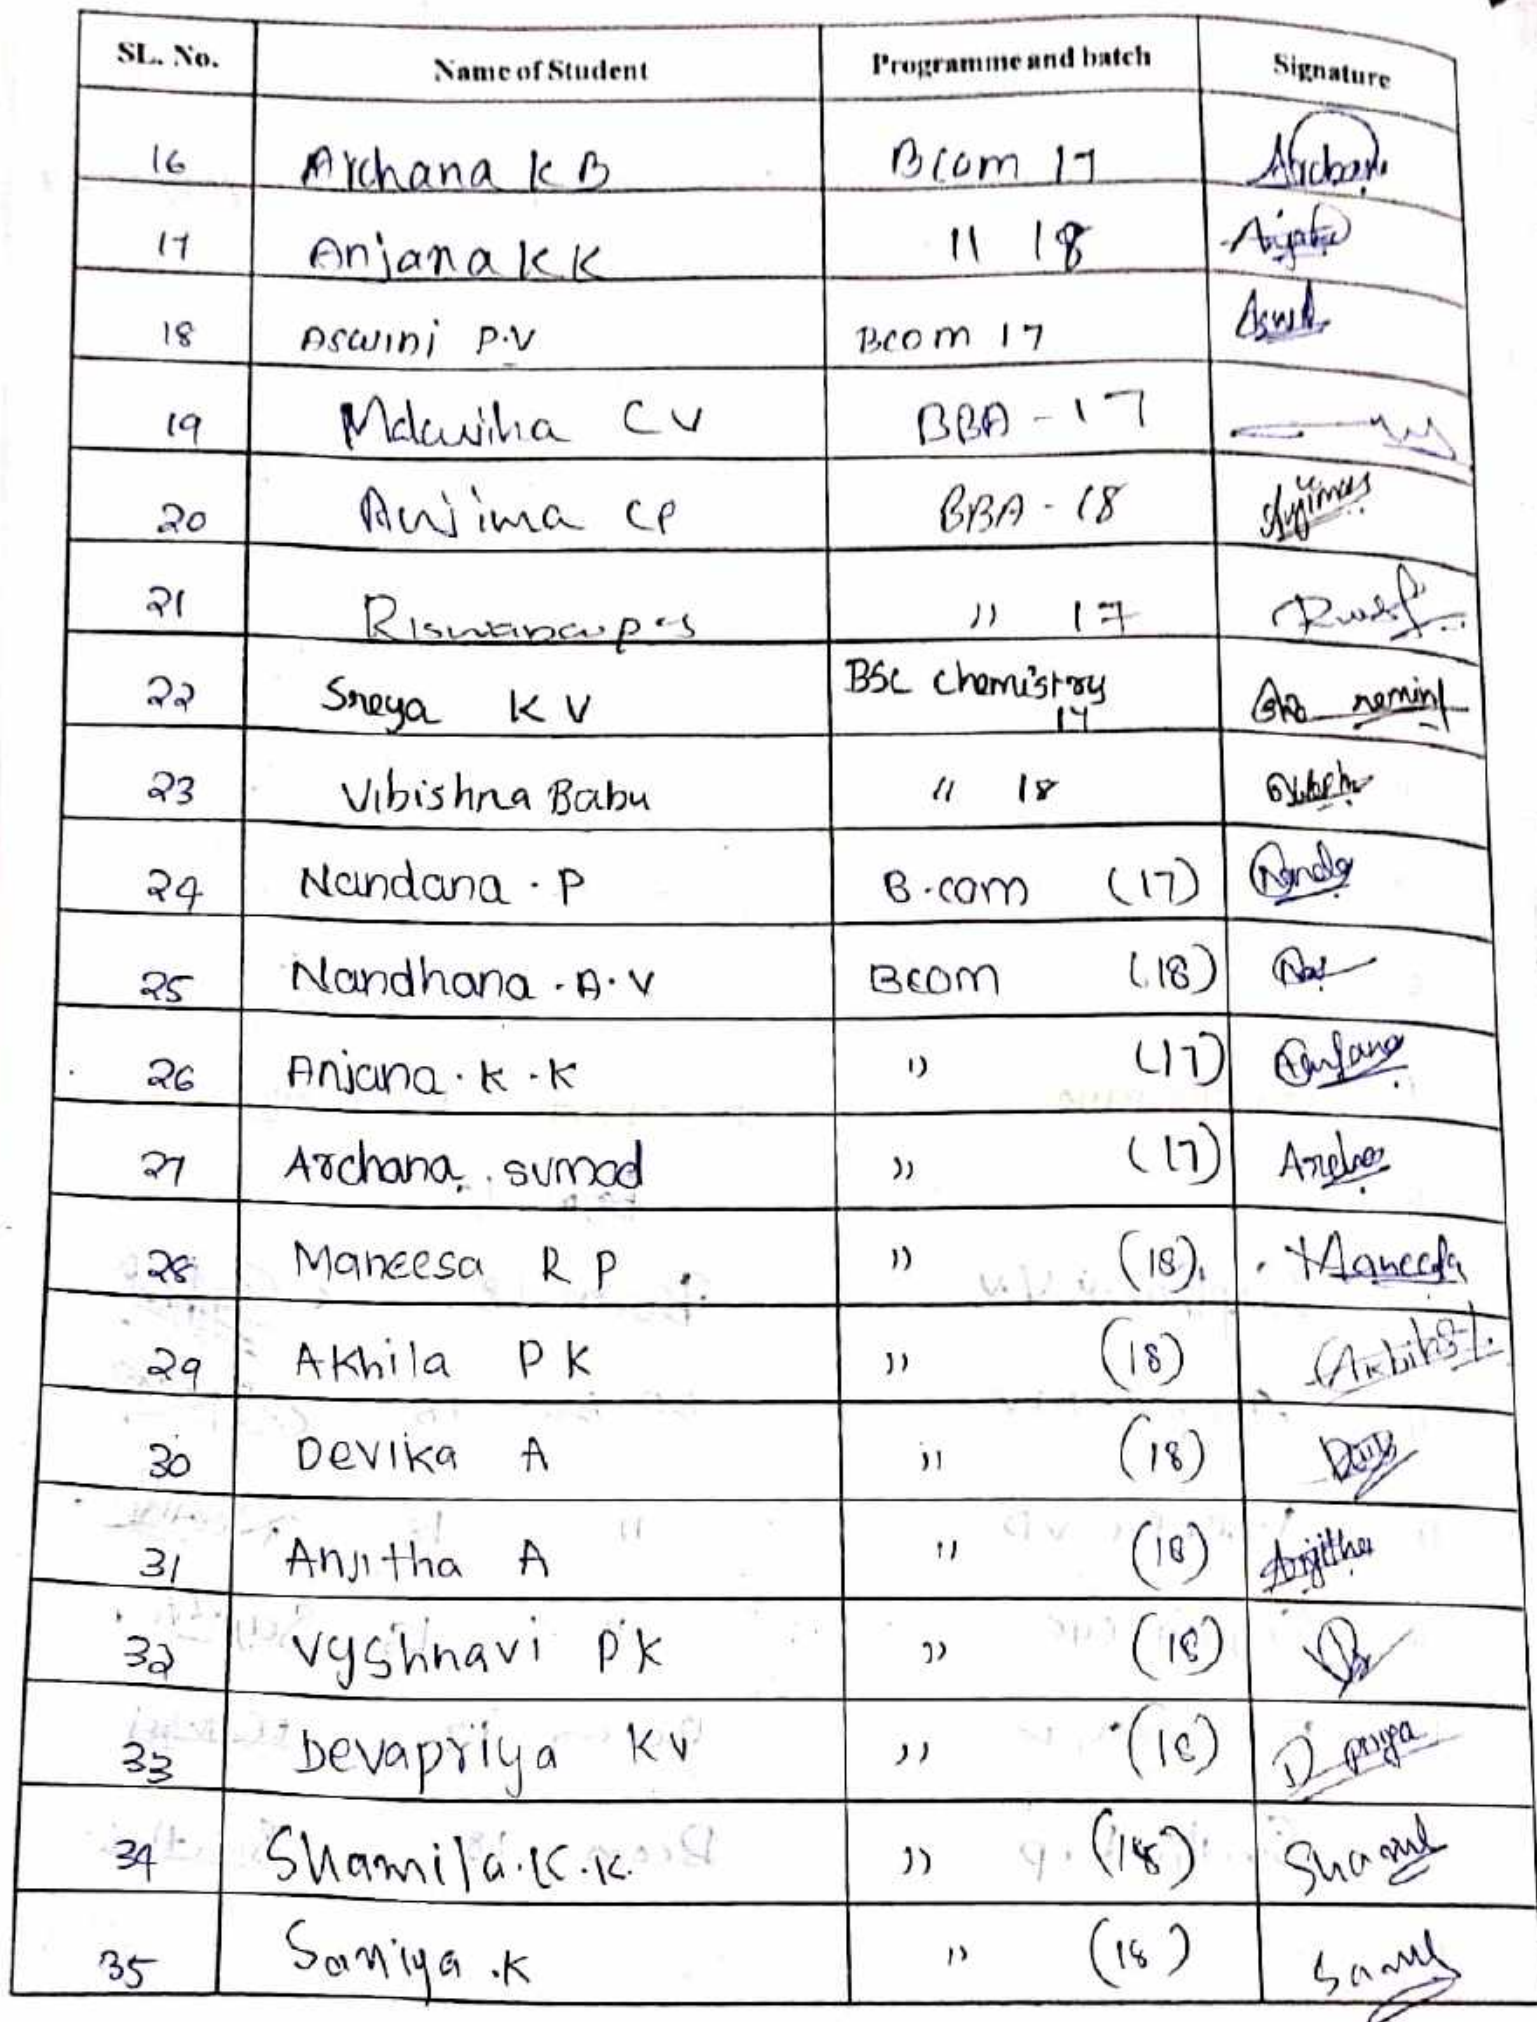 SL. No. Name of Student Programme and batch Signature
16 Archana K B Bcom 17
17 Anjana K K 11 18
18 Aswini P.V Bcom 17 Aswi
19 CV BBA - 17
20 Anjima CP BBA - 18 Anjima
21 " 17
22 Sreya K V BSC Chemistry
17
23 Vibishna Babu " 18
24 Nandana . P B.com (17) Nanda
25 Nandhana . A . V Bcom (18)
26 Anjana . K . K " (17) Anjana
27 Archana . sumod " (17)
28 Maneesa R P " (18) Maneesa
29 Akhila P K " (18)
30 Devika A " (18)
31 Anjitha A " (18) Anjitha
32 Vyshnavi P K " (18)
33 Devapriya K V " (18) D priya
34 Shamila . K . K. " (18)
35 Saniya . K " (18)